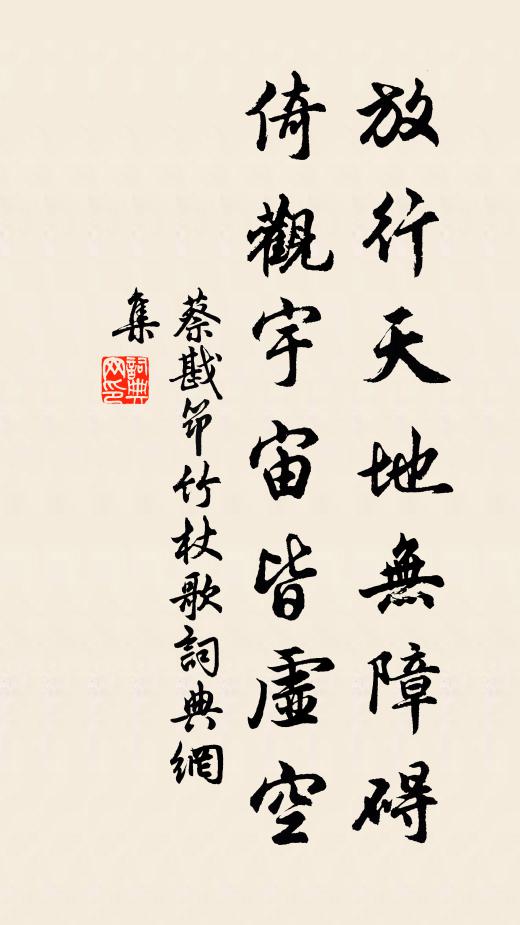 放行天地無障碍
倚觀宇宙皆虛空
蔡戡笻竹杖歌詞典網
集
詞典
网印